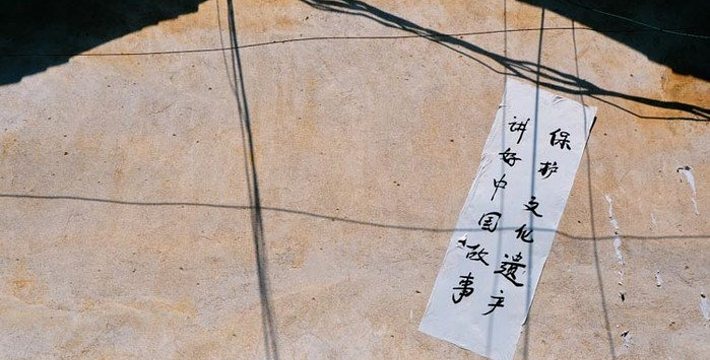 保护文化遗产
讲好中国故事